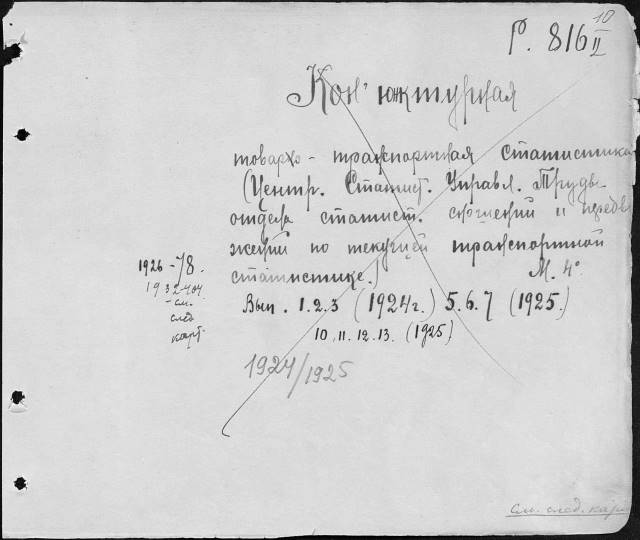 10
Р. 816 II
Кон'юнктурная
товарно-транспортная статистика
(Центр. Статист. Управл. Труды
отдела статист. сношений и передв
жений по текущей транспортной
статистике.) М. 4°
1926 - 78.
Вып. 1.2.3 (1924г.) 5.6.7 (1925.)
-см.
след
карт.
10.11.12.13. (1925)
1924/1925
См. след. кар